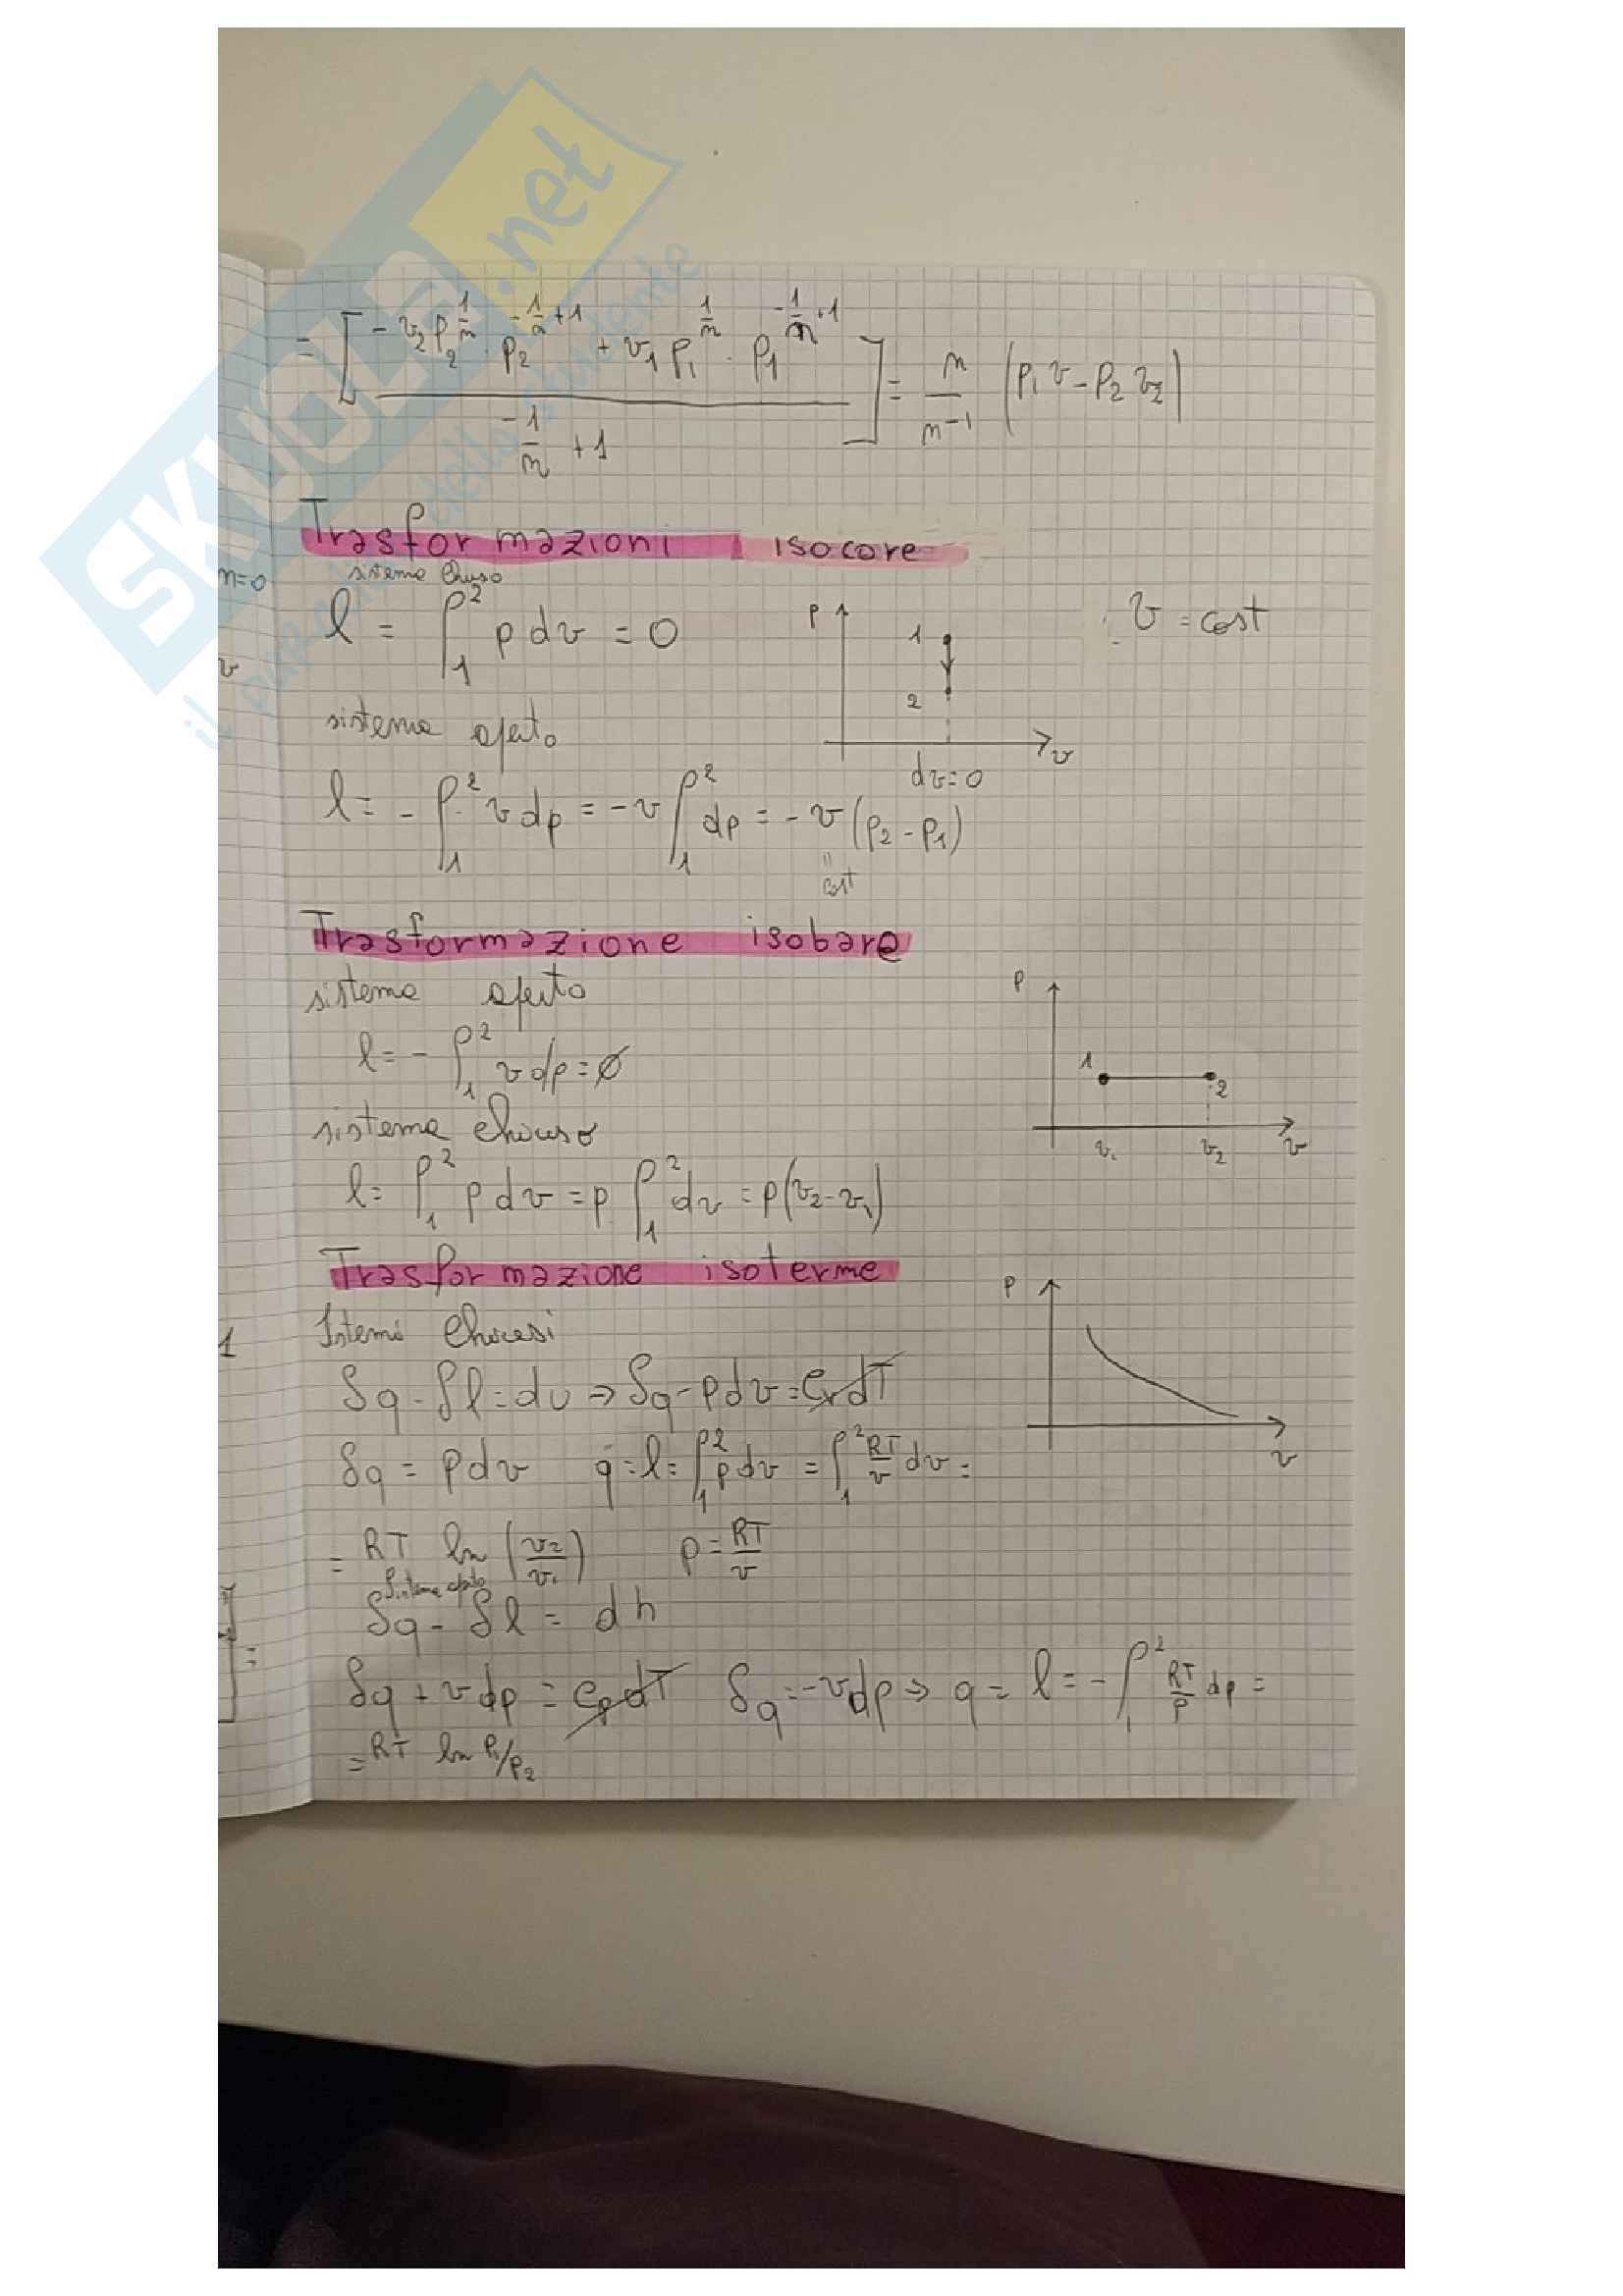 SKUOLA.net
il paradiso dello studente
= [ (- v₂ p₂^(1/n) · p₂^(-1/n+1) + v₁ p₁^(1/n) · p₁^(-1/n+1)) / (-1/n + 1) ] = n/(n-1) (p₁ v - p₂ v₂)
Trasformazioni isocore
n=0
sistema chiuso
l = ∫₁² p dv = 0
p
1
2
v
dv=0
v = cost
v
sistema aperto
l = - ∫₁² v dp = - v ∫₁² dp = - v (p₂ - p₁)
"
cost
Trasformazione isobare
sistema aperto
l = - ∫₁² v dp = ∅
p
1
2
v₁
v₂
v
sistema chiuso
l = ∫₁² p dv = p ∫₁² dv = p(v₂ - v₁)
Trasformazione isoterme
p
v
1
Sistemi chiusi
δq - δl = du ⇒ δq - p dv = cv dT
δq = p dv q = l = ∫₁² p dv = ∫₁² RT/v dv =
= RT ln (v₂/v₁) p = RT/v
Sistema aperto
δq - δl = dh
] =
δq + v dp = cp dT δq = - v dp ⇒ q = l = - ∫₁² RT/p dp =
= RT ln p₁/p₂